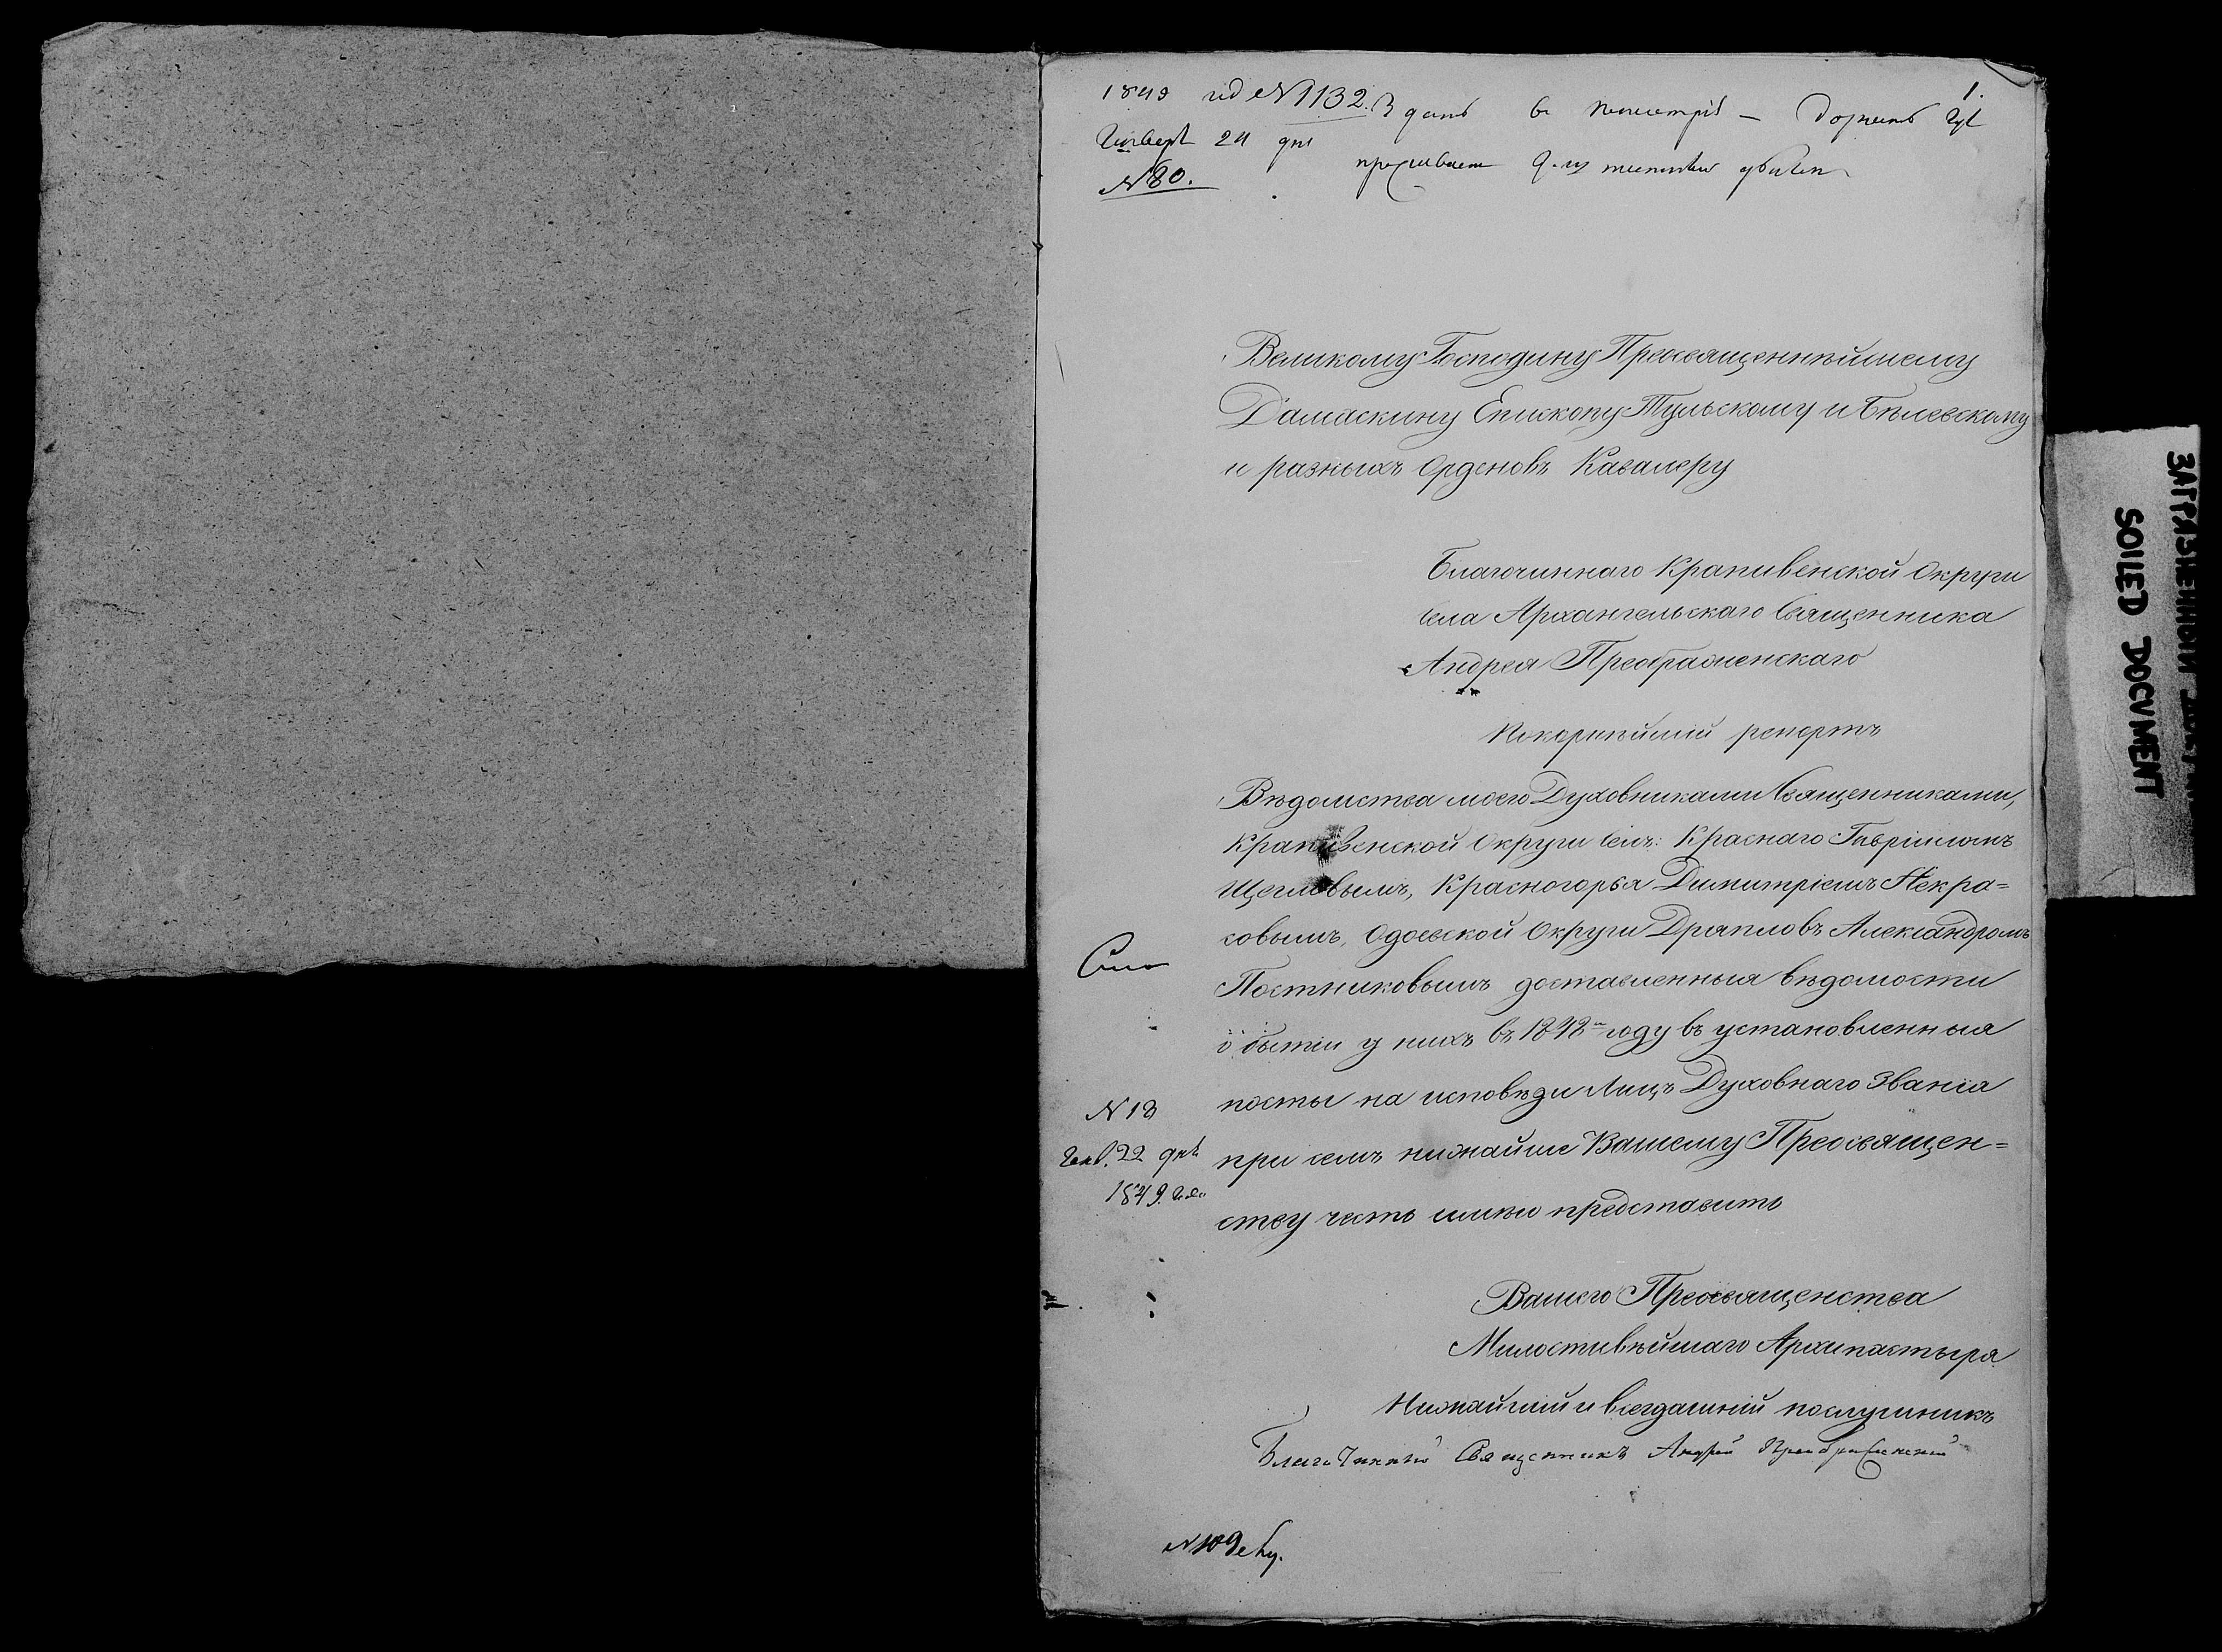 1849 год № 1132. Здать въ
1.
Генваря 24 дня
№ 80.
Великому Господину Преосвященнѣйшему
Дамаскину Епископу Тульскому и Бѣлевскому
и разныхъ Орденовъ Кавалеру
Благочиннаго Крапивенской Округи
села Архангельскаго Священника
Андрея Преображенскаго
Покорнѣйшій репортъ
Вѣдомства моего Духовниками Священниками,
Крапивенской Округи селъ: Краснаго Гавріиломъ
Щегловымъ, Красногорья Димитріемъ Некра=
совымъ, Одоевской Округи Дряпловъ Александромъ
Постниковымъ доставленныя вѣдомости
о бытіи у нихъ въ 1848 м году въ установленныя
посты на исповѣди Лицъ Духовнаго Званія
при семъ нижайше Вашему Преосвящен=
ству честь имѣю представить
№ 18
Генв. 22 дня
1849. года
Вашего Преосвященства
Милостивѣйшаго Архипастыря
Нижайшій и всегдашній послушникъ
Благочинный Священникъ Андрей Преображенскій
№ 109
ЗАГРЯЗНЕННЫЙ
SOILED DOCUMENT